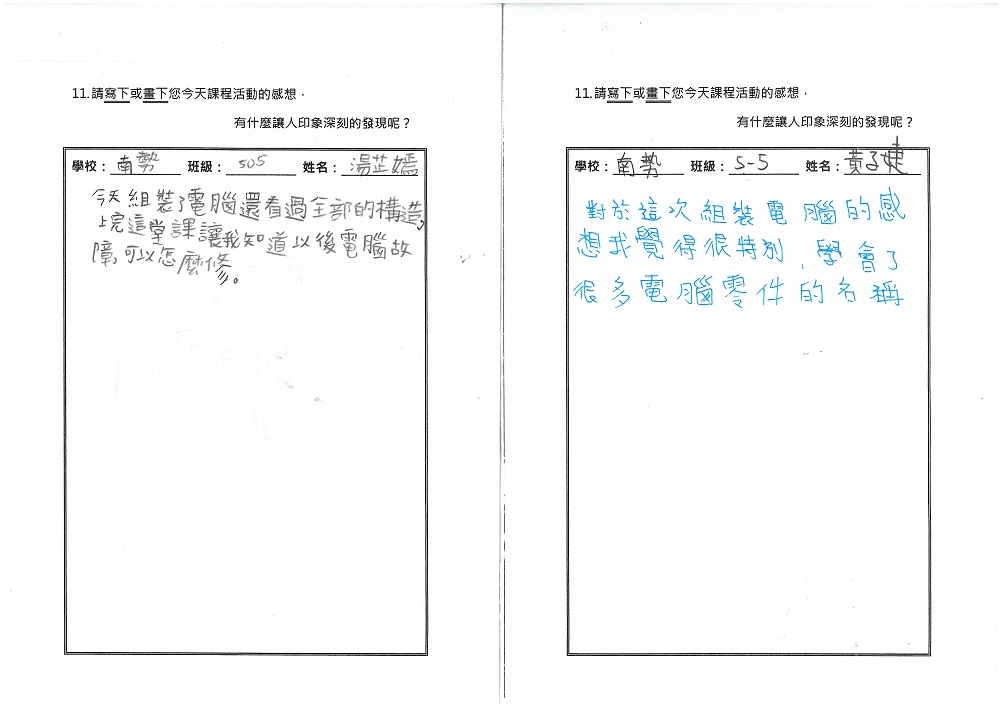 11.請寫下或畫下您今天課程活動的感想，
有什麼讓人印象深刻的發現呢？
學校：南勢 班級：505 姓名：湯芷嫣
今天組裝了電腦還看過全部的構造,
上完這堂課讓我知道以後電腦故
障,可以怎麼修。
11.請寫下或畫下您今天課程活動的感想，
有什麼讓人印象深刻的發現呢？
學校：南勢 班級：5-5 姓名：黃子婕
對於這次組裝電腦的感
想我覺得很特別,學會了
很多電腦零件的名稱